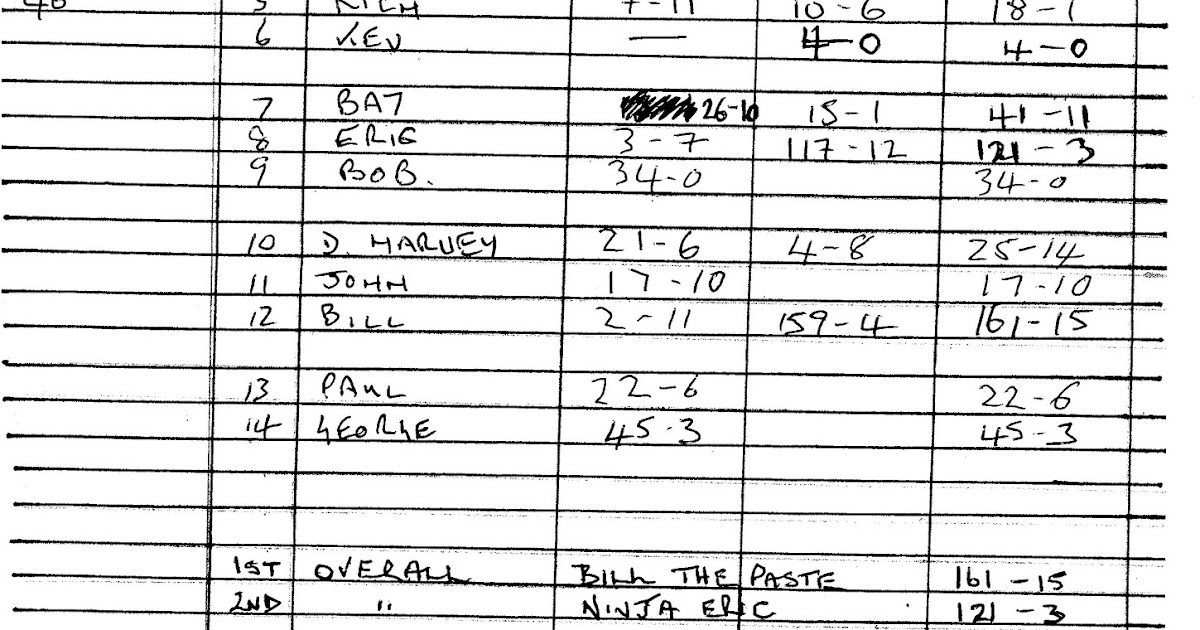 40 5 RICH 7-11 10-6 18-1
6 KEV — 4-0 4-0
7 BAT 26-10 15-1 41-11
8 ERIC 3-7 117-12 121-3
9 BOB. 34-0 34-0
10 D. HARVEY 21-6 4-8 25-14
11 JOHN 17-10 17-10
12 BILL 2-11 159-4 161-15
13 PAUL 22-6 22-6
14 GEORGE 45-3 45-3
1ST OVERALL BILL THE PASTE 161-15
2ND " NINJA ERIC 121-3